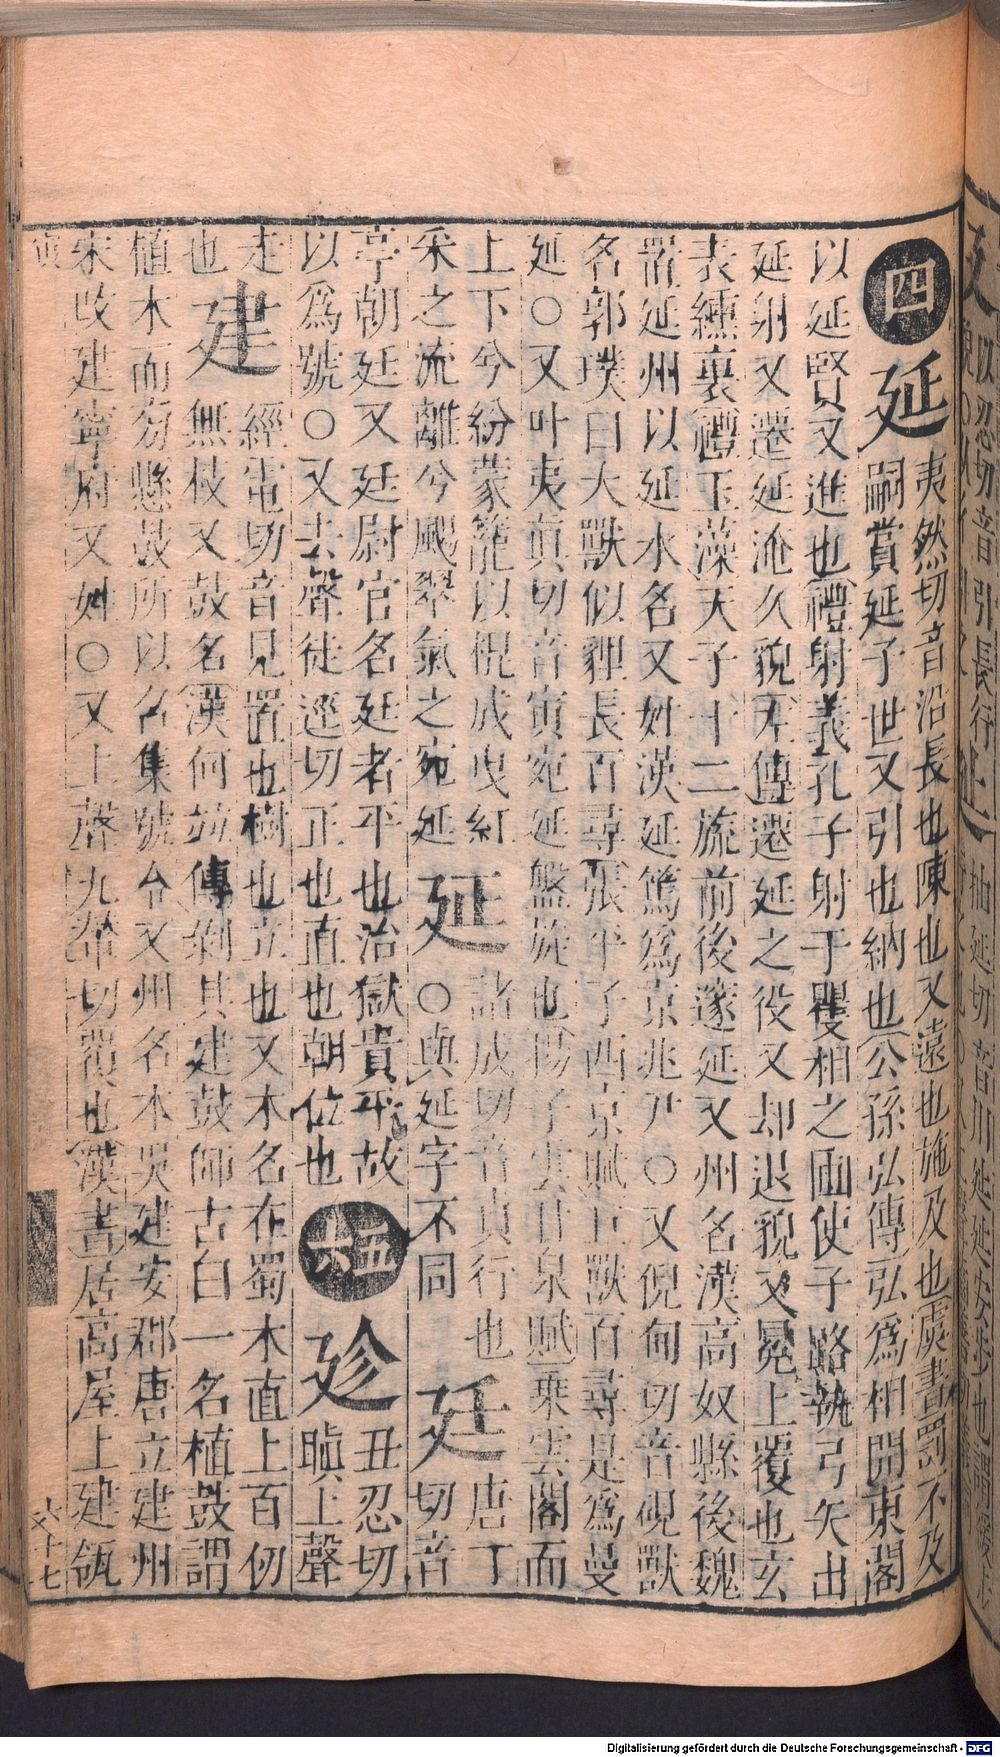 四延夷然切音沿長也陳也又遠也施及也虞書罰不及
嗣賞延子世又引也納也公孫弘傳弘爲相開東閣
以延賢又進也禮射義孔子射于矍相之圃使子路執弓矢出
延射又遷延淹久貌左傳遷延之役又却退貌又冕上覆也玄
表纁裏禮玉藻天子十二旒前後邃延又州名漢高奴縣後魏
置延州以延水名又姓漢延篤爲京兆尹○又倪甸切音硯獸
名郭璞曰大獸似貍長百尋張平子西京賦巨獸百尋是爲曼
延○又叶夷眞切音寅宛延盤旋也揚子雲甘泉賦乘雲閣而
上下兮紛蒙籠以棍成曳紅
采之流離兮颺翠氣之宛延延諸成切音貞行也
○與延字不同廷唐丁切音
亭朝廷又廷尉官名廷者平也治獄貴平故
以爲號○又去聲徒逕切正也直也朝位也五六㐱丑忍切
瞋上聲
走也建經電切音見置也樹也立也又木名在蜀木直上百仞
無枝又鼓名漢何竝傳剝其建鼓師古曰一名植鼓謂
植木而旁懸鼓所以名集號令又州名本吳建安郡唐立建州
宋改建寧府又姓○又上聲九輦切覆也漢書居高屋上建瓴
六十七
Digitalisierung gefördert durch die Deutsche Forschungsgemeinschaft - DFG